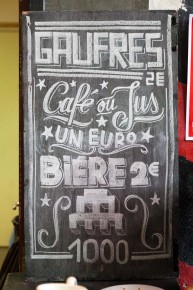 GAUFRES
2€
Café ou Jus
UN EURO
BiÈRE 2€
1000